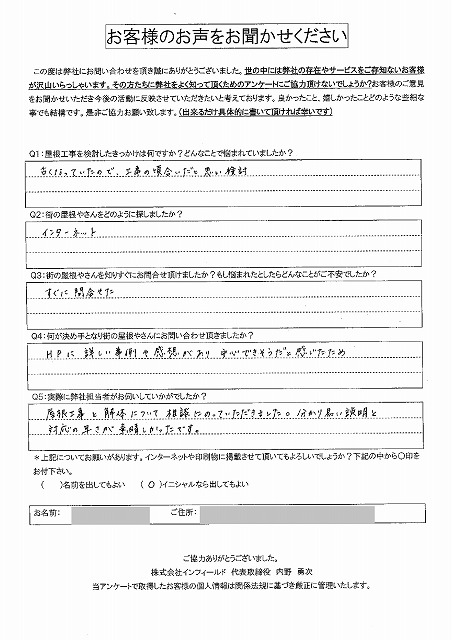 お客様のお声をお聞かせください
この度は弊社にお問い合わせを頂き誠にありがとうございました。世の中には弊社の存在やサービスをご存知ないお客様
が沢山いらっしゃいます。その方たちに弊社をよく知って頂くためのアンケートにご協力頂けないでしょうか?お客様のご意見
をお聞かせいただき今後の活動に反映させていただきたいと考えております。良かったこと、嬉しかったことどのような些細な
事でも結構です。是非ご協力お願い致します。(出来るだけ具体的に書いて頂ければ幸いです)
Q1:屋根工事を検討したきっかけは何ですか?どんなことで悩まれていましたか?
古くなっていたので、工事の頃合いだと思い検討
Q2:街の屋根やさんをどのように探しましたか?
インターネット
Q3:街の屋根やさんを知りすぐにお問合せ頂けましたか?もし悩まれたとしたらどんなことがご不安でしたか?
すぐに問合せた
Q4:何が決め手となり街の屋根やさんにお問い合わせ頂きましたか?
HPに詳しい事例や感想があり安心できそうだと感じたため
Q5:実際に弊社担当者がお伺いしていかがでしたか?
屋根工事と解体について相談にのっていただきました。分かり易い説明と
対応の早さが素晴しかったです。
*上記についてお願いがあります。インターネットや印刷物に掲載させて頂いてもよろしいでしょうか?下記の中から〇印を
お付下さい。
( )名前を出してもよい (〇)イニシャルなら出してもよい
お名前: ご住所:
ご協力ありがとうございました。
株式会社インフィールド 代表取締役 内野 勇次
当アンケートで取得したお客様の個人情報は関係法規に基づき厳正に管理いたします。